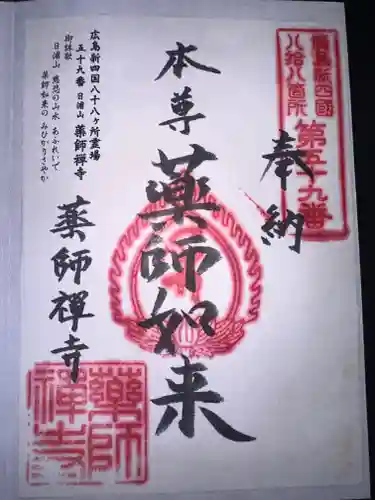 廣島新四國
八拾八箇所
第五十九番
奉納
本尊
薬師如来
広島新四国八十八ヶ所霊場
五十九番 日浦山 薬師禅寺
御詠歌
日浦山 慈悲の山水 あふれいて
薬師如来の みひかりさやか
薬師禅寺
薬師
禅寺